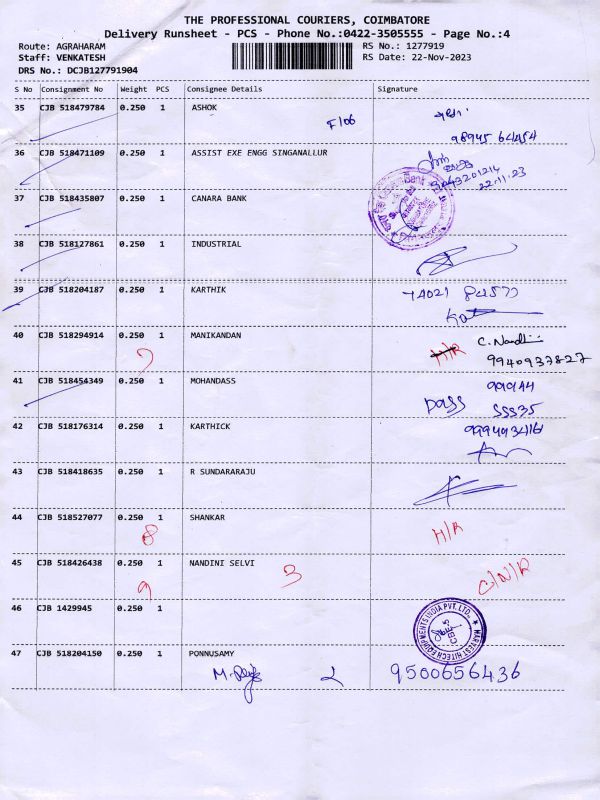 THE PROFESSIONAL COURIERS, COIMBATORE
Delivery Runsheet - PCS - Phone No.:0422-3505555 - Page No.:4
Route: AGRAHARAM
RS No.: 1277919
Staff: VENKATESH
RS Date: 22-Nov-2023
DRS No.: DCJB127791904
S No Consignment No Weight PCS Consignee Details Signature
35 CJB 518479784 0.250 1 ASHOK
F106
98945 64454
36 CJB 518471109 0.250 1 ASSIST EXE ENGG SINGANALLUR
22.11.23
37 CJB 518435807 0.250 1 CANARA BANK
38 CJB 518127861 0.250 1 INDUSTRIAL
39 CJB 518204187 0.250 1 KARTHIK
40 CJB 518294914 0.250 1 MANIKANDAN
7 H/R C. Nandhini
9940937827
41 CJB 518454349 0.250 1 MOHANDASS
Dass SSS35
42 CJB 518176314 0.250 1 KARTHICK
43 CJB 518418635 0.250 1 R SUNDARARAJU
44 CJB 518527077 0.250 1 SHANKAR
8 H/R
45 CJB 518426438 0.250 1 NANDINI SELVI
9 3 C/N/R
46 CJB 1429945 0.250 1
HITECH EQUIPMENTS INDIA PVT. LTD.
CBE-5
47 CJB 518204150 0.250 1 PONNUSAMY
2 9500656436